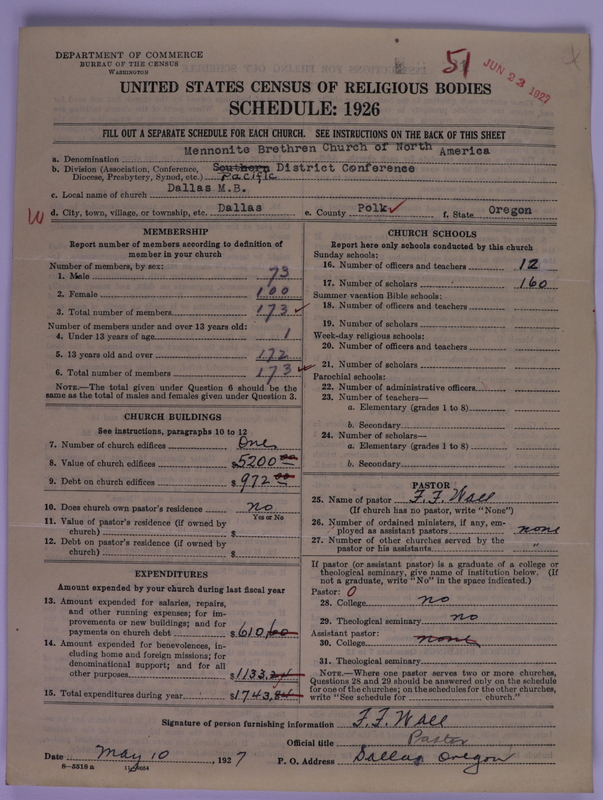 DEPARTMENT OF COMMERCE
BUREAU OF THE CENSUS
WASHINGTON
51
JUN 23 1927
UNITED STATES CENSUS OF RELIGIOUS BODIES
SCHEDULE: 1926
FILL OUT A SEPARATE SCHEDULE FOR EACH CHURCH. SEE INSTRUCTIONS ON THE BACK OF THIS SHEET
a. Denomination Mennonite Brethren Church of North America
b. Division (Association, Conference, Diocese, Presbytery, Synod, etc.) Southern District Conference
Pacific
c. Local name of church Dallas M.B.
d. City, town, village, or township, etc. Dallas e. County Polk f. State Oregon
MEMBERSHIP
Report number of members according to definition of
member in your church
Number of members, by sex:
1. Male 73
2. Female 100
3. Total number of members 173
Number of members under and over 13 years old:
4. Under 13 years of age 1
5. 13 years old and over 172
6. Total number of members 173
NOTE.—The total given under Question 6 should be the
same as the total of males and females given under Question 3.
CHURCH BUILDINGS
See instructions, paragraphs 10 to 12
7. Number of church edifices One
8. Value of church edifices $5200 00
9. Debt on church edifices $972 00
10. Does church own pastor's residence no
Yes or No
11. Value of pastor's residence (if owned by
church) $
12. Debt on pastor's residence (if owned by
church) $
EXPENDITURES
Amount expended by your church during last fiscal year
13. Amount expended for salaries, repairs,
and other running expenses; for im-
provements or new buildings; and for
payments on church debt $610.60
14. Amount expended for benevolences, in-
cluding home and foreign missions; for
denominational support; and for all
other purposes $1133.24
15. Total expenditures during year $1743.84
CHURCH SCHOOLS
Report here only schools conducted by this church
Sunday schools:
16. Number of officers and teachers 12
17. Number of scholars 160
Summer vacation Bible schools:
18. Number of officers and teachers
19. Number of scholars
Week-day religious schools:
20. Number of officers and teachers
21. Number of scholars
Parochial schools:
22. Number of administrative officers
23. Number of teachers—
a. Elementary (grades 1 to 8)
b. Secondary
24. Number of scholars—
a. Elementary (grades 1 to 8)
b. Secondary
PASTOR
25. Name of pastor F. F. Wall
(If church has no pastor, write "None")
26. Number of ordained ministers, if any, em-
ployed as assistant pastors none
27. Number of other churches served by the
pastor or his assistants "
If pastor (or assistant pastor) is a graduate of a college or
theological seminary, give name of institution below. (If
not a graduate, write "No" in the space indicated.)
Pastor: 0
28. College no
29. Theological seminary no
Assistant pastor:
30. College none
31. Theological seminary
NOTE.—Where one pastor serves two or more churches,
Questions 28 and 29 should be answered only on the schedule
for one of the churches; on the schedules for the other churches,
write "See schedule for church."
Signature of person furnishing information F. F. Wall
Official title Pastor
Date May 10, 1927 P. O. Address Dallas Oregon
8—3318 a